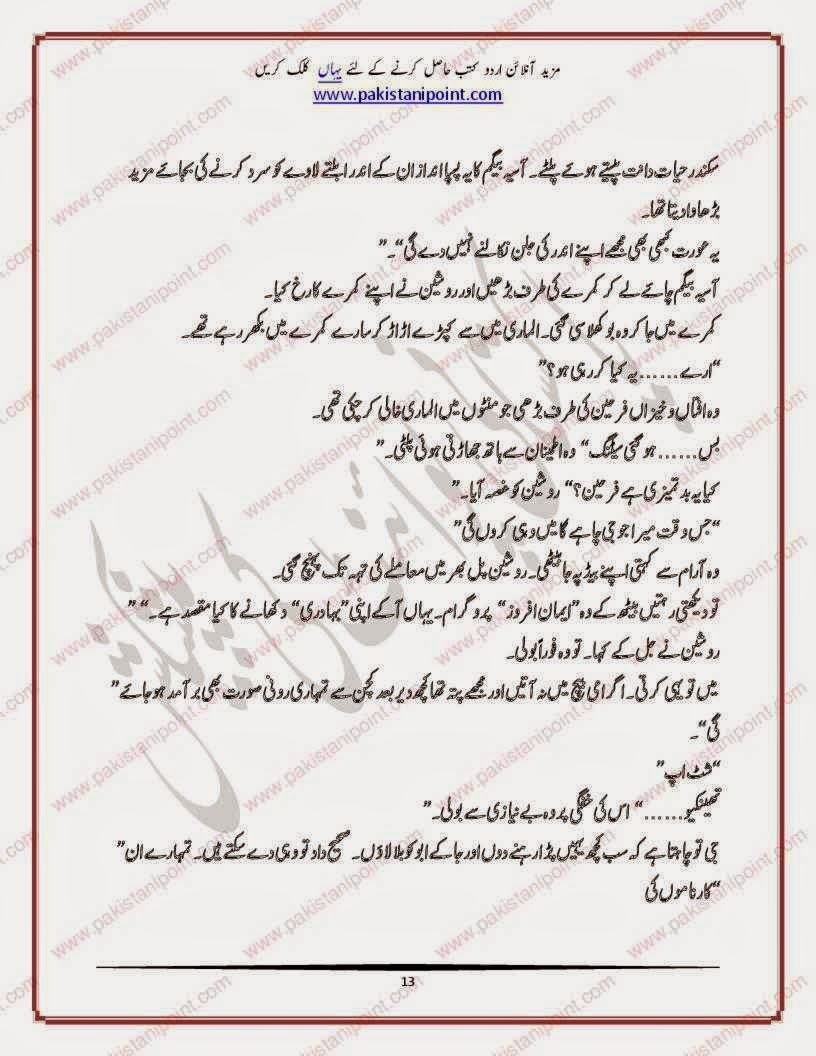 مزید آنلائن اردو کتب حاصل کرنے کے لئے یہاں کلک کریں
www.pakistanipoint.com
سکندر حیات دانت پیستے ہوئے پلٹے۔ آسیہ بیگم کا یہ پسپا انداز ان کے اندر ابلتے لاوے کو سرد کرنے کی بجائے مزید
بڑھاوا دیتا تھا۔
یہ عورت کبھی بھی مجھے اپنے اندر کی جلن نکالنے نہیں دے گی“۔”
آسیہ بیگم چائے لے کر کمرے کی طرف بڑھیں اور روشین نے اپنے کمرے کا رخ کیا۔
کمرے میں جا کر وہ بوکھلا سی گئی۔ الماری میں سے کپڑے اڑ اڑ کر سارے کمرے میں بکھر رہے تھے۔
“ارے......یہ کیا کر رہی ہو؟”
وہ افتاں و خیزاں فرحین کی طرف بڑھی جو منٹوں میں الماری خالی کر چکی تھی۔
بس......ہو گئی سیٹنگ“ وہ اطمینان سے ہاتھ جھاڑتی ہوئی پلٹی۔”
کیا یہ بد تمیزی ہے فرحین؟“ روشین کو غصہ آیا۔”
“جس وقت میرا جو جی چاہے گا میں وہی کروں گی”
وہ آرام سے کہتی اپنے بیڈ پہ جا بیٹھی۔ روشین پل بھر میں معاملے کی تہہ تک پہنچ گئی۔
تو دیکھتی رہتیں بیٹھ کے وہ ”ایمان افروز“ پروگرام۔ یہاں آکے اپنی ”بہادری“ دکھانے کا کیا مقصد ہے۔“ ”
روشین نے جل کے کہا۔ تو وہ فوراً بولی۔
میں تو یہی کرتی۔ اگر امی بیچ میں نہ آتیں اور مجھے پتہ تھا کچھ دیر بعد کچن سے تمہاری رونی صورت بھی برآمد ہو جائے”
گی“۔
“شٹ اپ”
تھینکیو......“ اس کی خفگی پر وہ بے نیازی سے بولی۔”
جی تو چاہتا ہے کہ سب کچھ یہیں پڑا رہنے دوں اور جا کے ابو کو بلا لاؤں۔ صحیح داد تو وہی دے سکتے ہیں۔ تمہارے ان”
“کارناموں کی
13